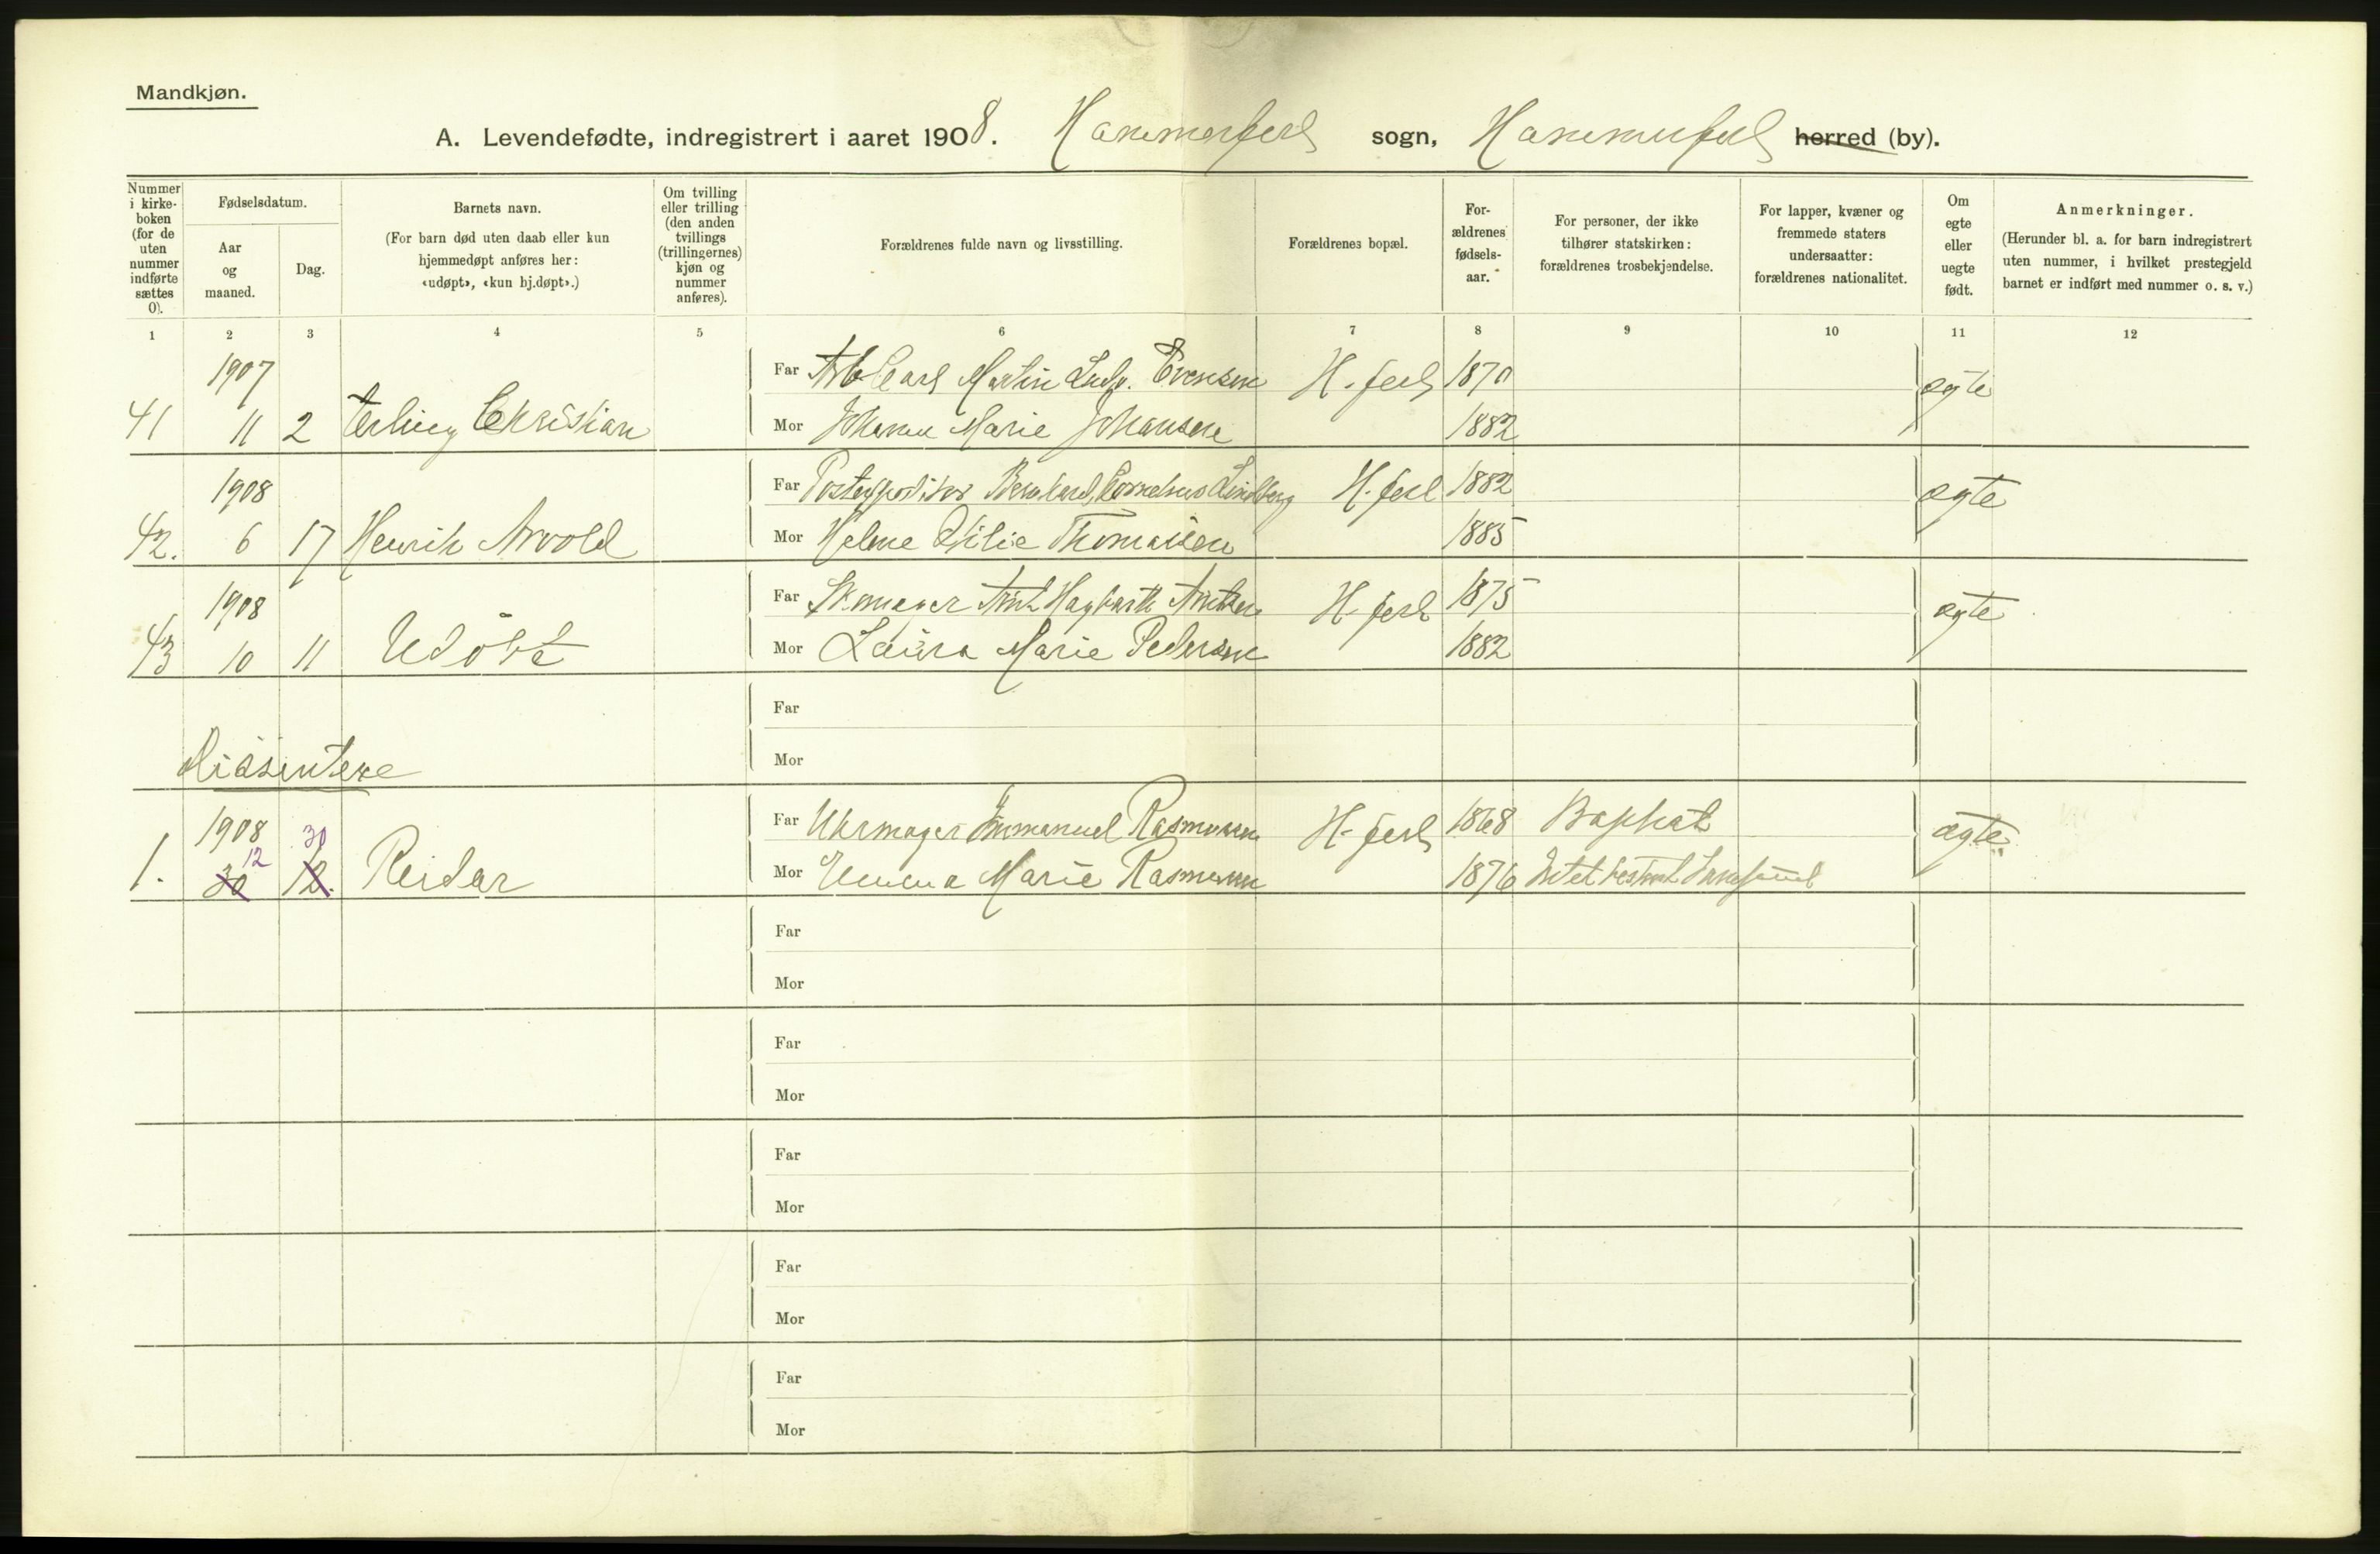 Mandkjøn.
A. Levendefødte, indregistrert i aaret 1908. Hammerfest sogn, Hammerfest herred (by).
Nummer i kirke-boken (for de uten nummer indførte sættes 0).
Fødselsdatum.
Aar og maaned.
Dag.
Barnets navn.
(For barn død uten daab eller kun hjemmedøpt anføres her: «udøpt», «kun hj.døpt».)
Om tvilling eller trilling (den anden tvillings (trillingernes) kjøn og nummer anføres).
Forældrenes fulde navn og livsstilling.
Forældrenes bopæl.
For-ældrenes fødsels-aar.
For personer, der ikke tilhører statskirken: forældrenes trosbekjendelse.
For lapper, kvæner og fremmede staters undersaatter: forældrenes nationalitet.
Om egte eller uegte født.
Anmerkninger.
(Herunder bl. a. for barn indregistrert uten nummer, i hvilket prestegjeld barnet er indført med nummer o. s. v.)
1 2 3 4 5 6 7 8 9 10 11 12
1907 Far Arb Carl Martin Evensen H.fest 1870 ægte
41 11 2 Erling Christian Mor Johanna Marie Johansen 1882
1908 Far Postexpeditør Bernhard Cornelius Lindberg H.fest 1882 ægte
42. 6 17 Henrik Arvold Mor Helene Otilie Thomassen 1885
1908 Far Skomager Hagbarth Arntzen H.fest 1875 ægte
43 10 11 Udöbt Mor Laura Marie Pedersen 1882
Far
Dissentere Mor
1908 30 Far Uhrmager Immanuel Rasmussen H.fest 1868 Baptist ægte
1. 30 12 12. Reidar Mor Emma Marie Rasmussen 1876 Intet bestemt Samfund
Far
Mor
Far
Mor
Far
Mor
Far
Mor
Far
Mor